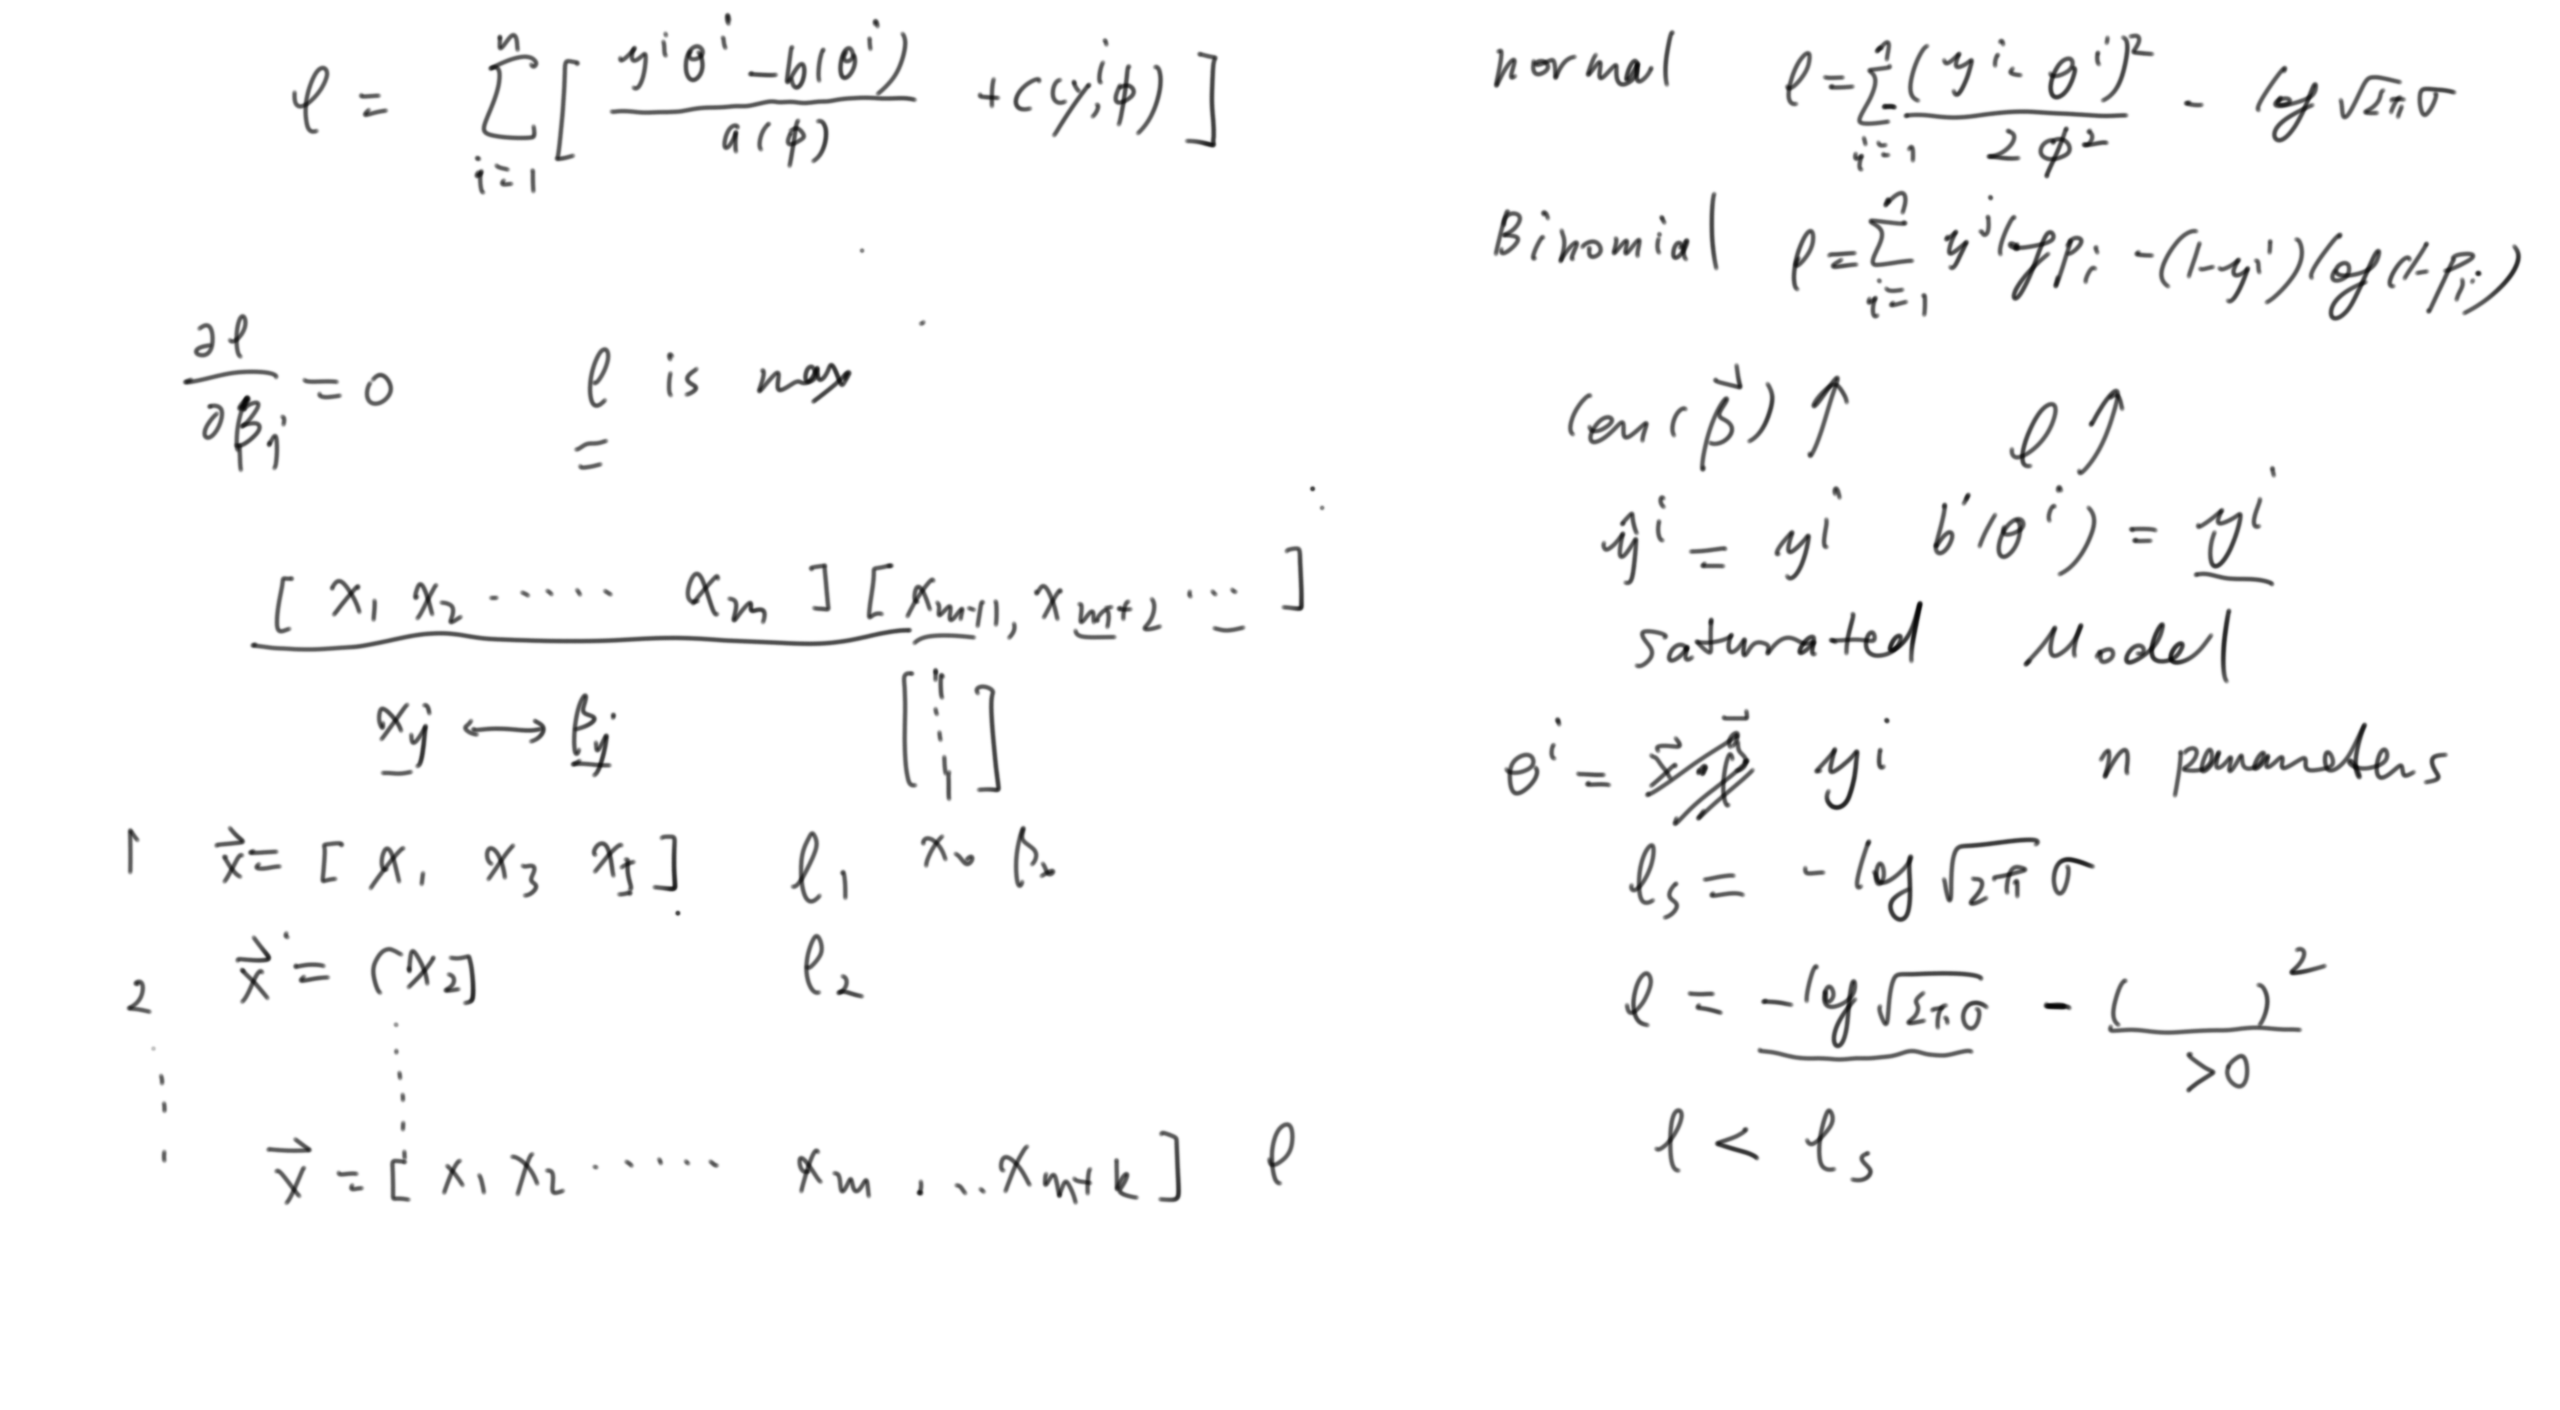 ℓ = Σ_{i=1}^{n} [ (y^i θ^i - b(θ^i)) / a(φ) + c(y^i, φ) ]
∂ℓ/∂β_j = 0    ℓ is max
=
[ x_1 x_2 ...... x_m ] [ x_{m+1}, x_{m+2} ... ]
x_j ↔ β_j    [ 1 ⋮ 1 ]
1  x⃗ = [ x_1 x_3 x_5 ]    ℓ_1    x_0 β_0
2  x⃗ = [x_2]    ℓ_2
⋮
x⃗ = [ x_1 x_2 ..... x_m ... x_{m+k} ]    ℓ
normal    ℓ = Σ_{i=1}^{n} - (y^i - θ^i)^2 / 2φ^2 - log √2π σ
Binomial    ℓ = Σ_{i=1}^{n} y^i log p_i - (1-y^i) log(1-p_i)
len(β⃗) ↑    ℓ ↑
ŷ^i = y^i    b'(θ^i) = y^i
saturated Model
θ^i = y^i    n parameters
ℓ_s = - log √2π σ
ℓ = - log √2π σ - ( )^2
>0
ℓ < ℓ_s